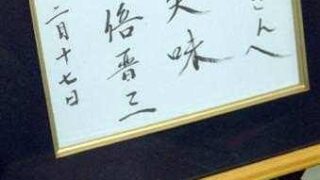 さんへ
美味
倍晋三
二月十七日